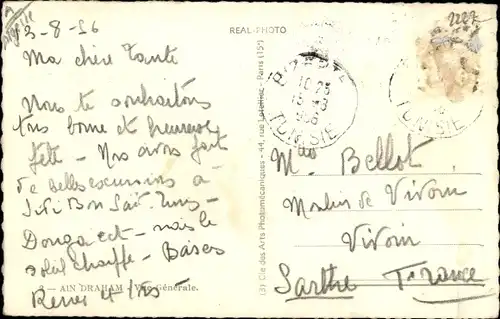 Algérie
3-8-56
Ma chère Tante
Nous te souhaitons
très bonne et heureuse
fête - Nous avons fait
de belles excursions à
Sidi Bou Saïd Tunis -
Dougga ect - mais le
soleil chauffe - Baisers
René et
AIN DRAHAM - Vue Générale.
REAL-PHOTO
(3) Cie des Arts Photomécaniques - 44, rue Letellier - Paris (15e)
10-25
TUNISIE
TUNISIE
Bellot
Moulin de Vivoin
Vivoin
Sarthe France